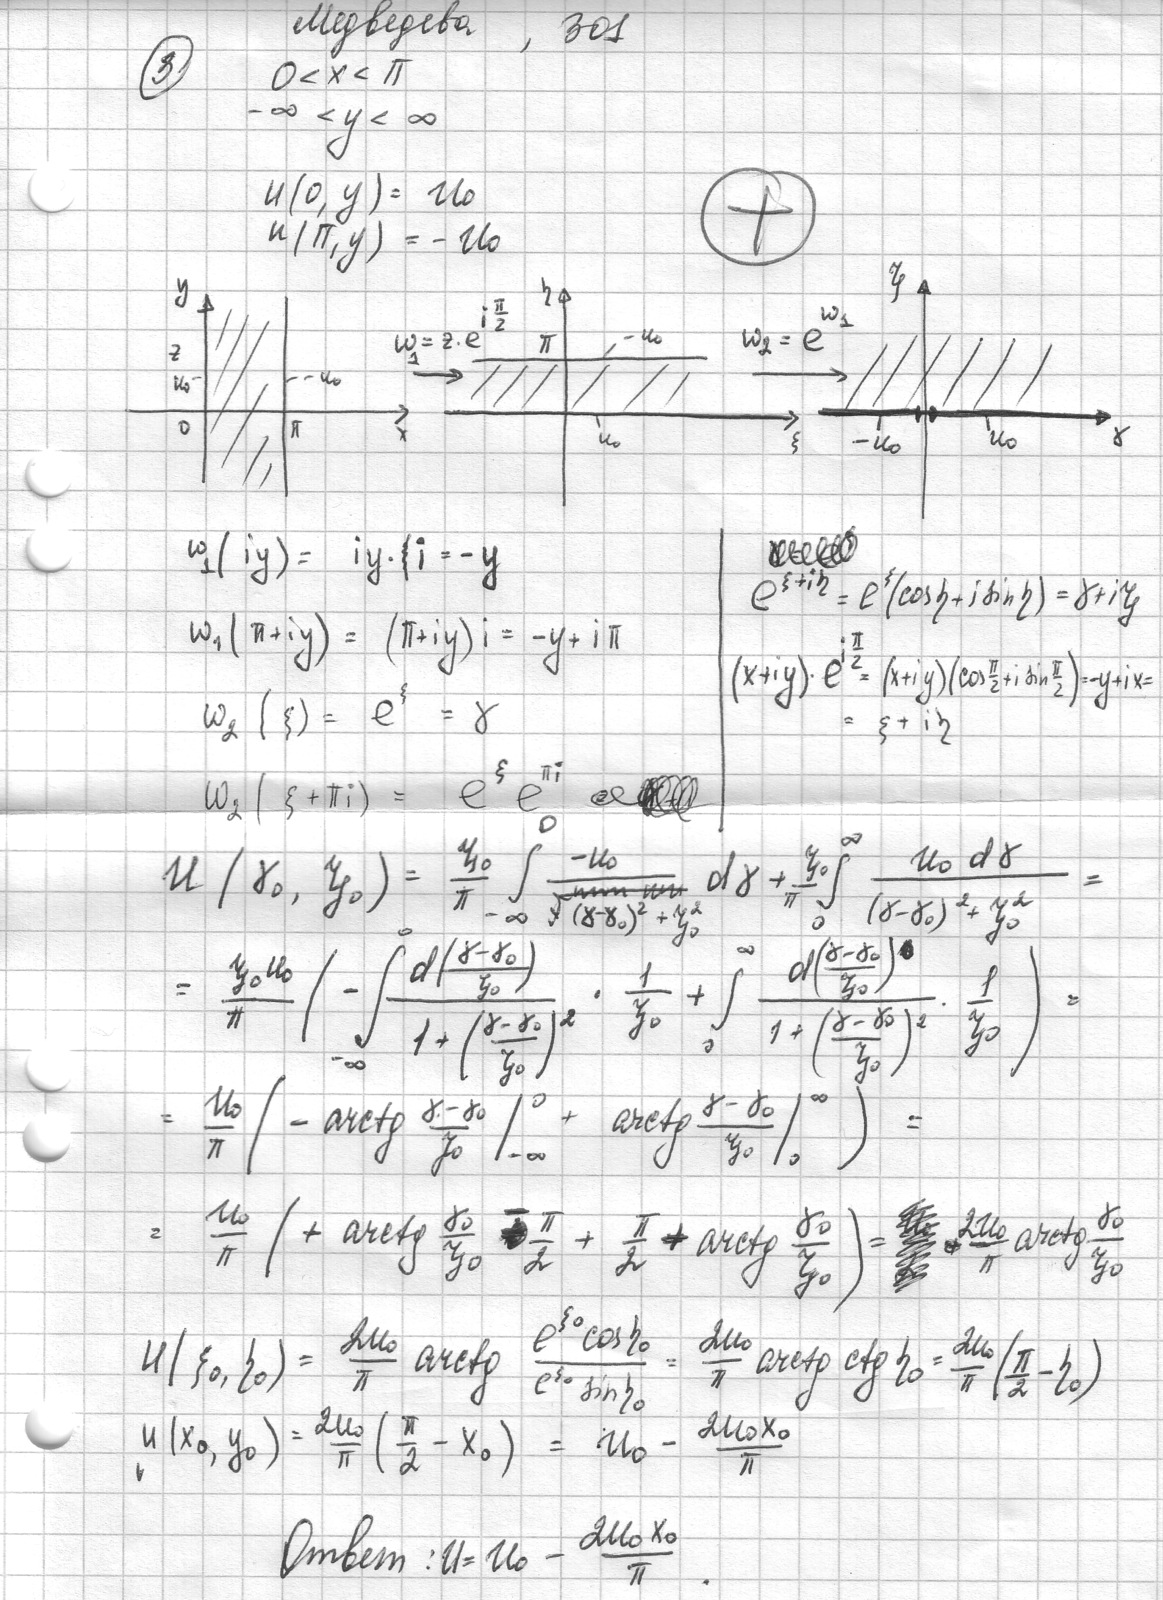 Медведева, 301
③
0 < x < π
-∞ < y < ∞
u(0, y) = u₀
u(π, y) = -u₀
+
y z u₀ 0 -u₀ π x
w₁ = z·e^{iπ/2}
η π -u₀ u₀ ξ
w₂ = e^{w₁}
ζ -u₀ u₀ γ
w₁(iy) = iy·i = -y
w₁(π+iy) = (π+iy)i = -y+iπ
w₂(ξ) = e^ξ = γ
w₂(ξ+πi) = e^ξ e^{πi}
e^{ξ+iη} = e^ξ(cosη+i sinη) = γ+iζ
(x+iy)·e^{iπ/2} = (x+iy)(cos π/2 + i sin π/2) = -y+ix =
= ξ+iη
u(γ₀, ζ₀) = ζ₀/π ∫_{-∞}^{0} -u₀/((γ-γ₀)²+ζ₀²) dγ + ζ₀/π ∫_{0}^{∞} u₀ dγ/((γ-γ₀)²+ζ₀²) =
= ζ₀u₀/π ( -∫_{-∞}^{0} d((γ-γ₀)/ζ₀)/(1+((γ-γ₀)/ζ₀)²) · 1/ζ₀ + ∫_{0}^{∞} d((γ-γ₀)/ζ₀)/(1+((γ-γ₀)/ζ₀)²) · 1/ζ₀ ) =
= u₀/π ( - arctg (γ-γ₀)/ζ₀ |_{-∞}^{0} + arctg (γ-γ₀)/ζ₀ |_{0}^{∞} ) =
= u₀/π ( + arctg γ₀/ζ₀ - π/2 + π/2 + arctg γ₀/ζ₀ ) = 2u₀/π arctg γ₀/ζ₀
u(ξ₀, η₀) = 2u₀/π arctg (e^{ξ₀} cosη₀)/(e^{ξ₀} sinη₀) = 2u₀/π arctg ctg η₀ = 2u₀/π (π/2 - η₀)
u(x₀, y₀) = 2u₀/π (π/2 - x₀) = u₀ - 2u₀x₀/π
Ответ: u = u₀ - 2u₀x₀/π.